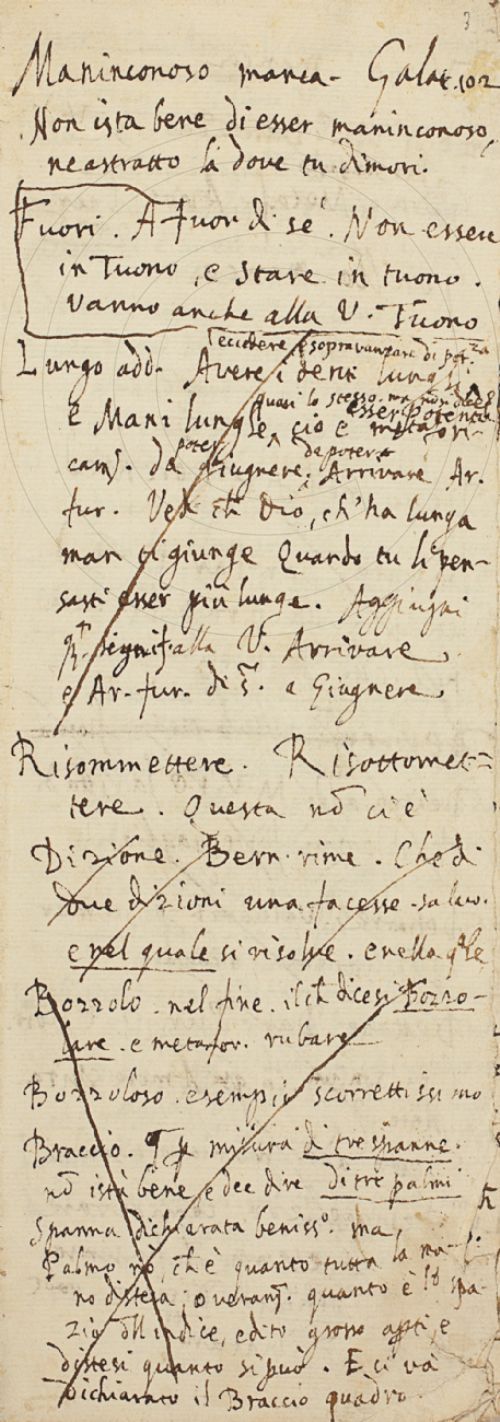 3
Maninconoso manca - Galat. 102
Non ista bene di esser maninconoso,
ne astratto là dove tu dimori.
Fuori. A fuor di se. Non essere
in Tuono, e stare in tuono.
Vanno anche alla V. Tuono
eccedere, sopravanzare di pot.za
Lungo add. Avere i denti lunghi
quasi lo stesso, ma
esser potente
e Mani lunghe, cio è
poter da poter
da Giugnere. Arrivare Ar.
fur. Ved ch Dio, ch'ha lunga
man ti giunge Quando tu li pen-
sasti esser più lunge. Aggiugni
signif. alla V. Arrivare
e Ar. fur. di s. a Giugnere
Risommettere. Risottomet=
tere. Questa nō ci è
Dizione. Bern. rime. Che di
due dizioni una facesse.
e nel quale si risolve. e nella qle
Bozzolo. nel fine. il ch dicesi Bozzo-
lare. e metafor. rubare
Bozzoloso. esempio scorrettissimo
Braccio. misura di tre spanne.
nō istà bene, e dee dire di tre palmi
Spanna dichiarata beniss.o ma,
Palmo nò, ch è quanto tutta la ma-
no distesa; overam. quanto è lo spa-
zio dll indice, e dito grosso apti, e
distesi quanto si può. E ci va
dichiarato il Braccio quadro